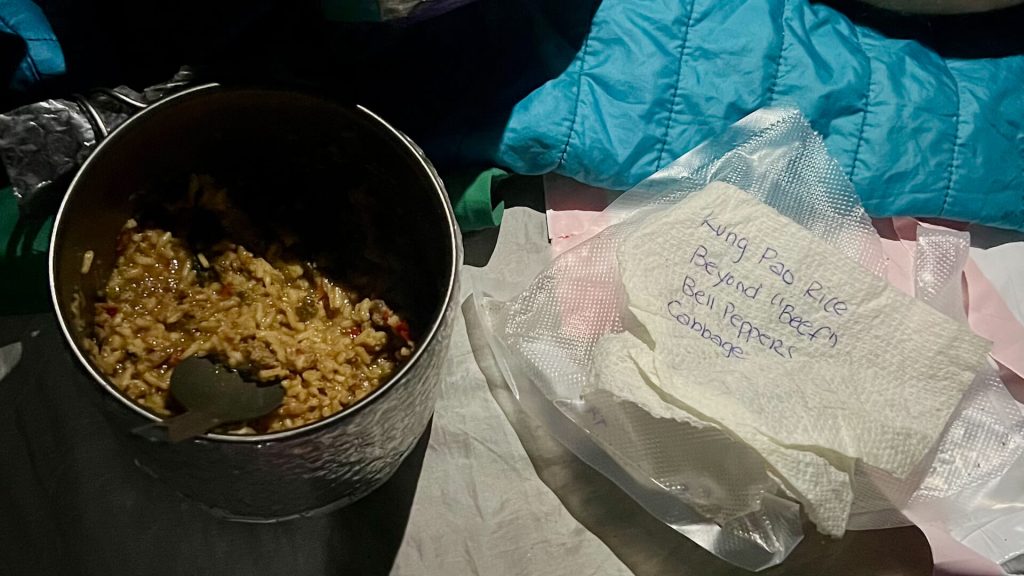 Kung Pao Rice
Beyond "Beef"
Bell Peppers
Cabbage